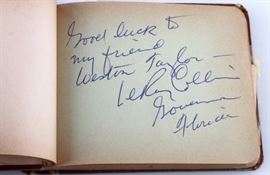 Good luck to
my friend
Weston Taylor –
LeRoy Collins
Governor
Florida